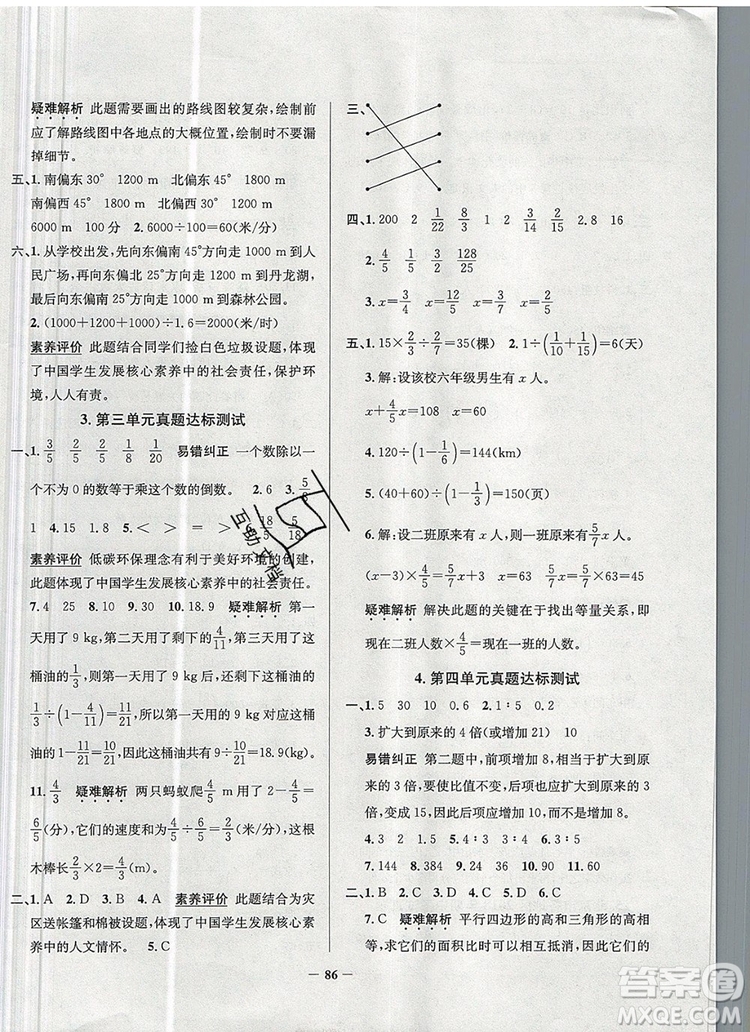 疑难解析 此题需要画出的路线图较复杂,绘制前
应了解路线图中各地点的大概位置,绘制时不要漏
掉细节。
五、1. 南偏东 30° 1200 m 北偏东 45° 1800 m
南偏西 45° 1500 m 北偏西 30° 1500 m
6000 m 100 分 2. 6000÷100=60(米/分)
六、1. 从学校出发,先向东偏南 45°方向走 1000 m 到人
民广场,再向东偏北 20°方向走 1000 m 到丹龙湖,
最后向东偏南 25°方向走 1000 m 到森林公园。
2. (1000+1200+1000)÷1.6=2000(米/时)
素养评价 此题结合同学们捡白色垃圾设题,体现
了中国学生发展核心素养中的社会责任,保护环
境,人人有责。
3. 第三单元真题达标测试
一、1. 3/5 2/5 2/5 1/8 1/20 易错纠正 一个数除以一
个不为 0 的数等于乘这个数的倒数。 2. 6 3. 5/8
1 4. 15 1.8 5. < > = > 18/5 5/18
素养评价 低碳环保理念有利于美好环境的创建,
此题体现了中国学生发展核心素养中的社会责任。
7. 4 25 8. 10 9. 10 10. 18.9 疑难解析 第一
天用了 9 kg,第二天用了剩下的 4/11,还剩下这
桶油的 1/3,则第一天用了 9 kg 后剩下这桶油的
1/3÷(1-4/11)=11/21,所以第一天用的 9 kg 对应这桶
油的 1-11/21=10/21,因此这桶油重 9÷10/21=18.9(kg)。
11. 4/3 疑难解析 两只蚂蚁爬 4/5 m 用了 2-4/5=
6/5(分),它们的速度和为 4/5÷6/5=2/3(米/分),这根
木棒长 2/3×2=4/3(m)。
二、1. A 2. D 3. A 4. D 素养评价 此题结合为灾
区送帐篷和棉被设题,体现了中国学生发展核心素
养中的人文情怀。 5. C
三、
四、1. 200 2 1/22 8/3 1 2 2.8 16
2. 4/5 1/4 2/3 128/25
3. x=3/4 x=12/5 x=5/3 x=2/5
五、1. 15×2/3÷2/7=35(棵) 2. 1÷(1/10+1/15)=6(天)
3. 解:设该校六年级男生有 x 人。
x+4/5x=108 x=60
4. 120÷(1-1/6)=144(km)
5. (40+60)÷(1-1/3)=150(页)
6. 解:设二班原来有 x 人,则一班原来有 5/7x 人。
(x-3)×4/5=5/7x+3 x=63 63×5/7=45(人)
疑难解析 解决此题的关键在于找出等量关系,即
现在二班人数×4/5=现在一班的人数。
4. 第四单元真题达标测试
一、1. 5 30 10 0.6 2. 1∶5 0.2
3. 扩大到原来的 4 倍(或增加 21) 10
易错纠正 第二题中,前项增加 8,相当于扩大到原
来的 3 倍,要使比值不变,后项也应扩大到原来的 3
倍,变成 15,因此后项应增加 8。
4. 3 5. 4∶3 4∶3 6. 3∶5
7. 144 8. 384 9. 30 10. 90 11. 60
二、1. C 2. A 3. C 4. A 5. A 6. C
7. C 疑难解析 平行四边形的高和三角形的高相
等,求它们的面积比时可以相互抵消,因此它们的
互助文档
86
答案圈
MXQE.COM